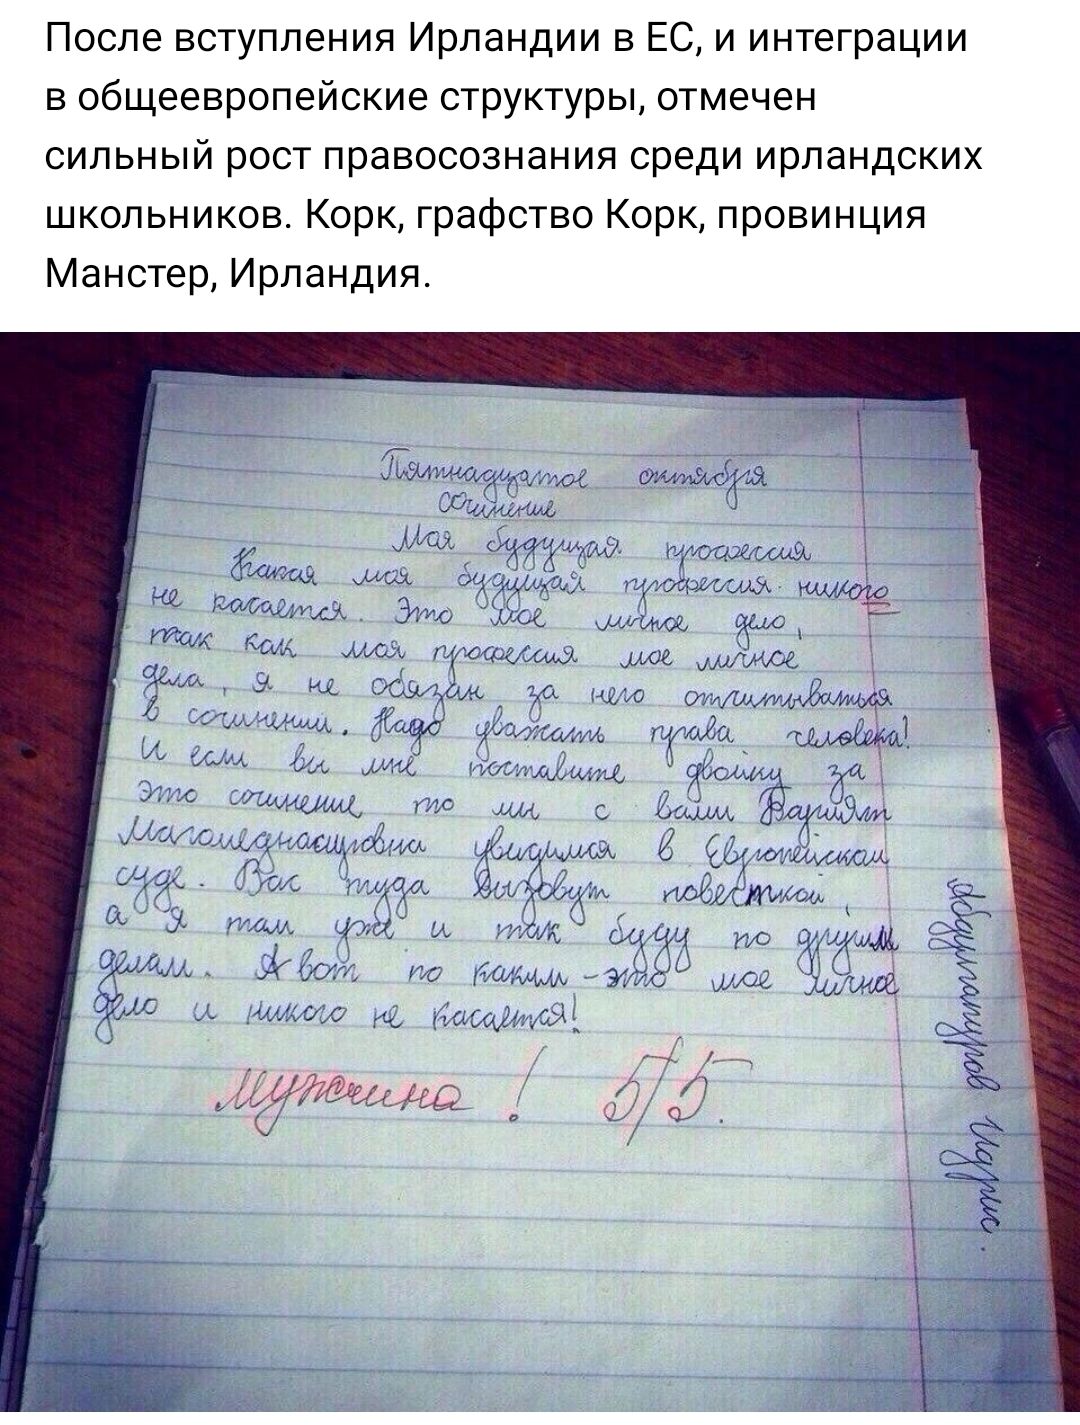 После вступления Ирландии в ЕС, и интеграции
в общеевропейские структуры, отмечен
сильный рост правосознания среди ирландских
школьников. Корк, графство Корк, провинция
Манстер, Ирландия.
Пятнадцатое октября
Сочинение
Моя будущая профессия
Какая моя будущая профессия никого
не касается. Это мое личное дело,
так как моя профессия мое личное
дела, я не обязан за него отчитываться
в сочинении. Надо уважать права человека!
И если вы мне поставите двойку за
это сочинение, то мы с вами
увидимся в Европейском
суде. Вас туда вызовут повесткой,
а я там уже и так буду по другим
делам. А вот по каким - это мое личное
дело и никого не касается!
Мужчина! 5/5.
Абдулгапуров Идрис.